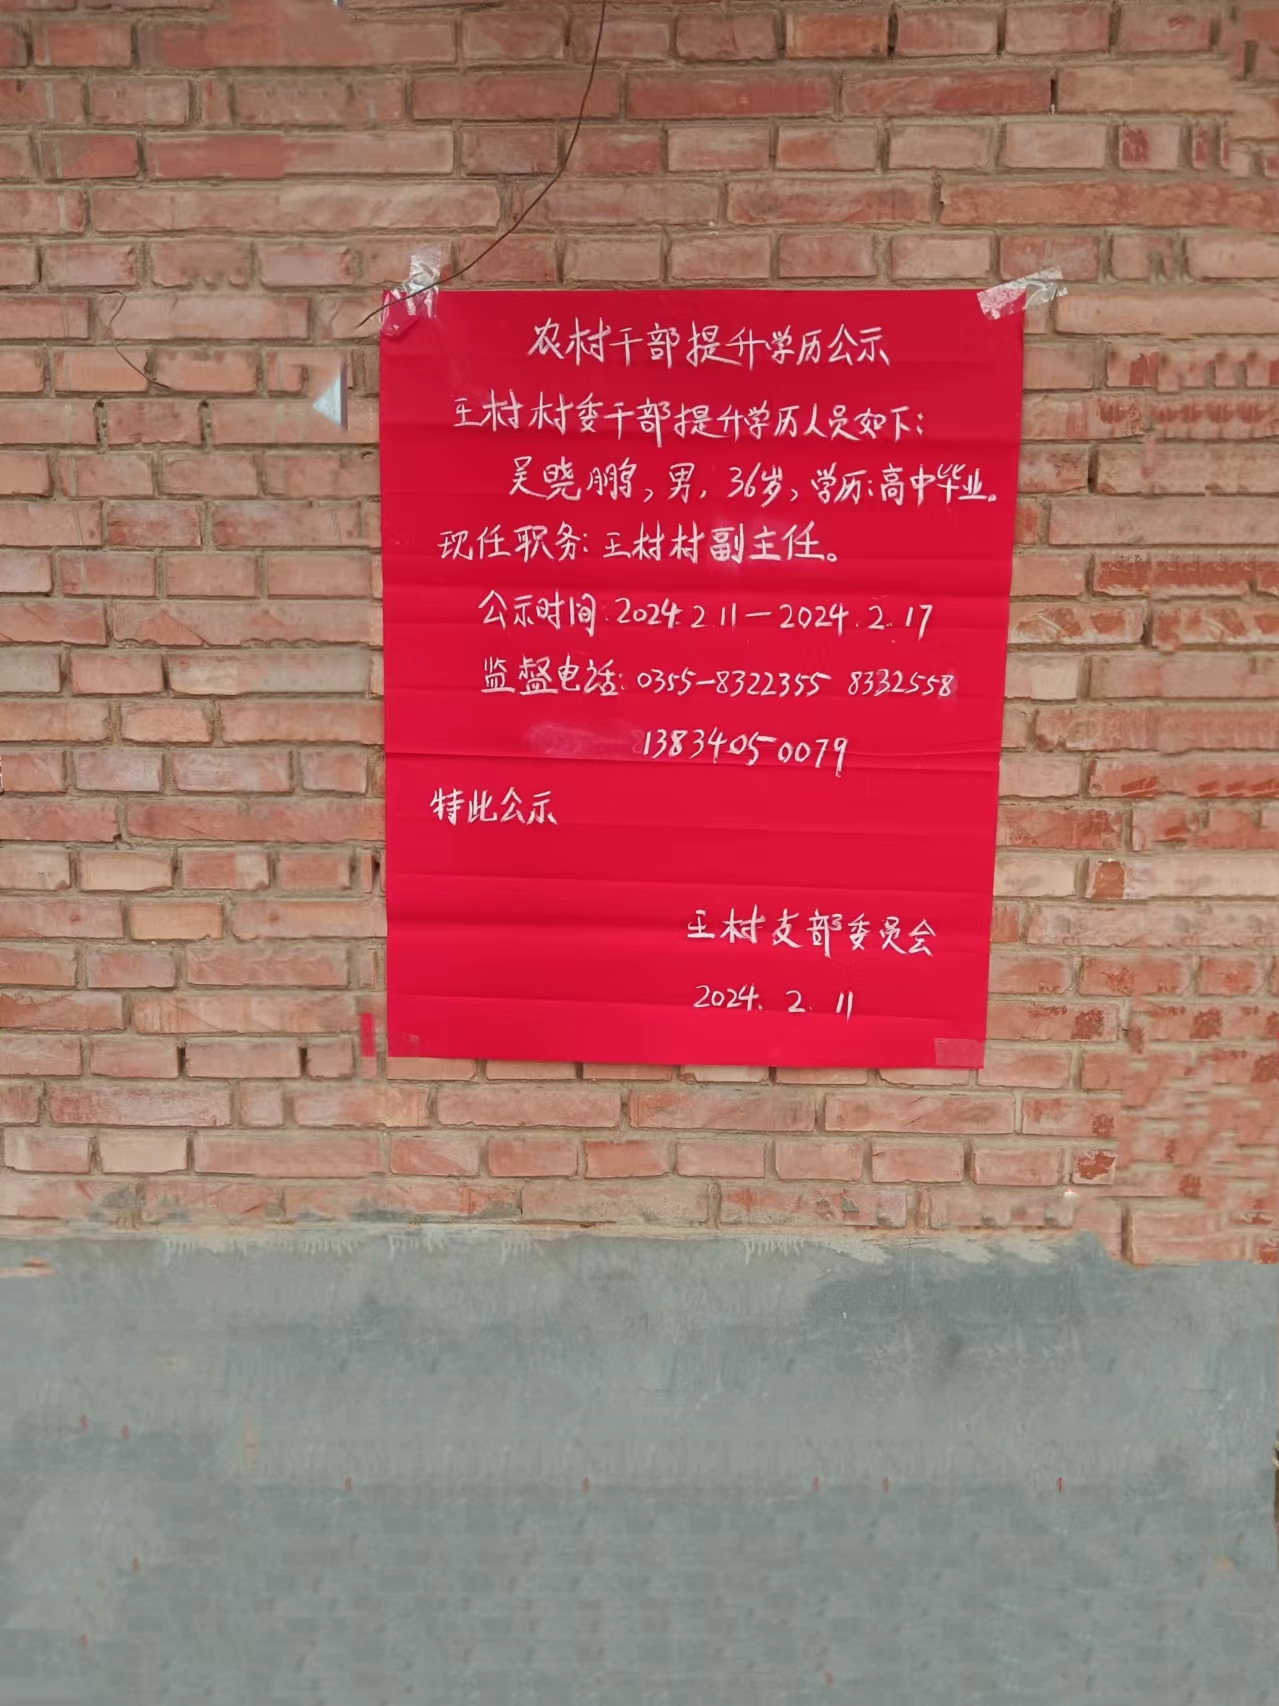 农村干部提升学历公示
王村村委干部提升学历人员如下：
吴晓鹏，男，36岁，学历：高中毕业。
现任职务：王村村副主任。
公示时间：2024.2.11—2024.2.17
监督电话：0355-8322355 8332558
13834050079
特此公示
王村支部委员会
2024.2.11